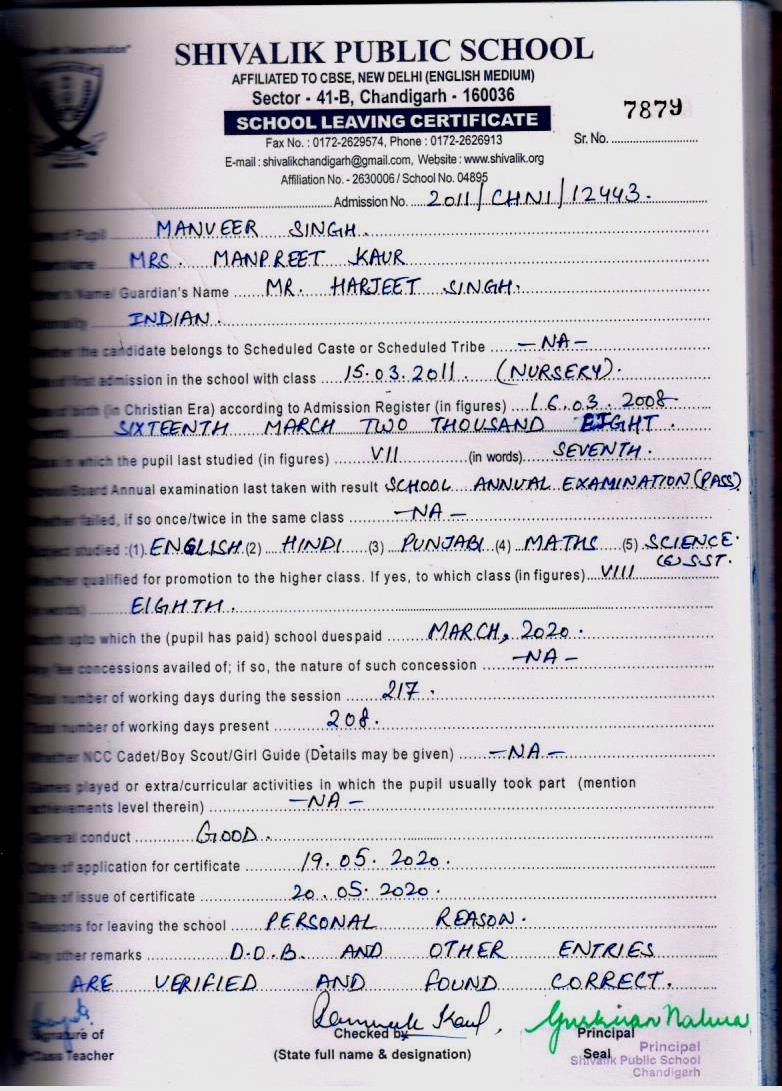 SHIVALIK PUBLIC SCHOOL
AFFILIATED TO CBSE, NEW DELHI (ENGLISH MEDIUM)
Sector - 41-B, Chandigarh - 160036
SCHOOL LEAVING CERTIFICATE
7879
Fax No. : 0172-2629574, Phone : 0172-2626913
Sr. No.
E-mail : shivalikchandigarh@gmail.com, Website : www.shivalik.org
Affiliation No. - 2630006 / School No. 04895
Admission No. 2011/CHN1/12443.
of Pupil MANVEER SINGH.
Name MRS. MANPREET KAUR
Name/ Guardian's Name MR. HARJEET SINGH.
INDIAN.
the candidate belongs to Scheduled Caste or Scheduled Tribe -NA-
of first admission in the school with class 15.03.2011. (NURSERY).
of birth (in Christian Era) according to Admission Register (in figures) 16.03.2008
SIXTEENTH MARCH TWO THOUSAND EIGHT.
in which the pupil last studied (in figures) VII (in words) SEVENTH.
School/Board Annual examination last taken with result SCHOOL ANNUAL EXAMINATION (PASS)
Whether failed, if so once/twice in the same class -NA-
Subject studied :(1) ENGLISH (2) HINDI (3) PUNJABI (4) MATHS (5) SCIENCE.
(6) S.ST.
Whether qualified for promotion to the higher class. If yes, to which class (in figures) VIII
words) EIGHTH.
Month upto which the (pupil has paid) school duespaid MARCH, 2020.
Any fee concessions availed of; if so, the nature of such concession -NA-
Total number of working days during the session 217.
Total number of working days present 208.
Whether NCC Cadet/Boy Scout/Girl Guide (Details may be given) -NA-
Games played or extra/curricular activities in which the pupil usually took part (mention
achievements level therein) -NA-
General conduct GOOD.
Date of application for certificate 19.05.2020.
Date of issue of certificate 20.05.2020.
Reasons for leaving the school PERSONAL REASON.
Any other remarks D.O.B. AND OTHER ENTRIES
ARE VERIFIED AND FOUND CORRECT.
Signature of
Class Teacher
Checked by
(State full name & designation)
Principal
Seal
Principal
Shivalik Public School
Chandigarh